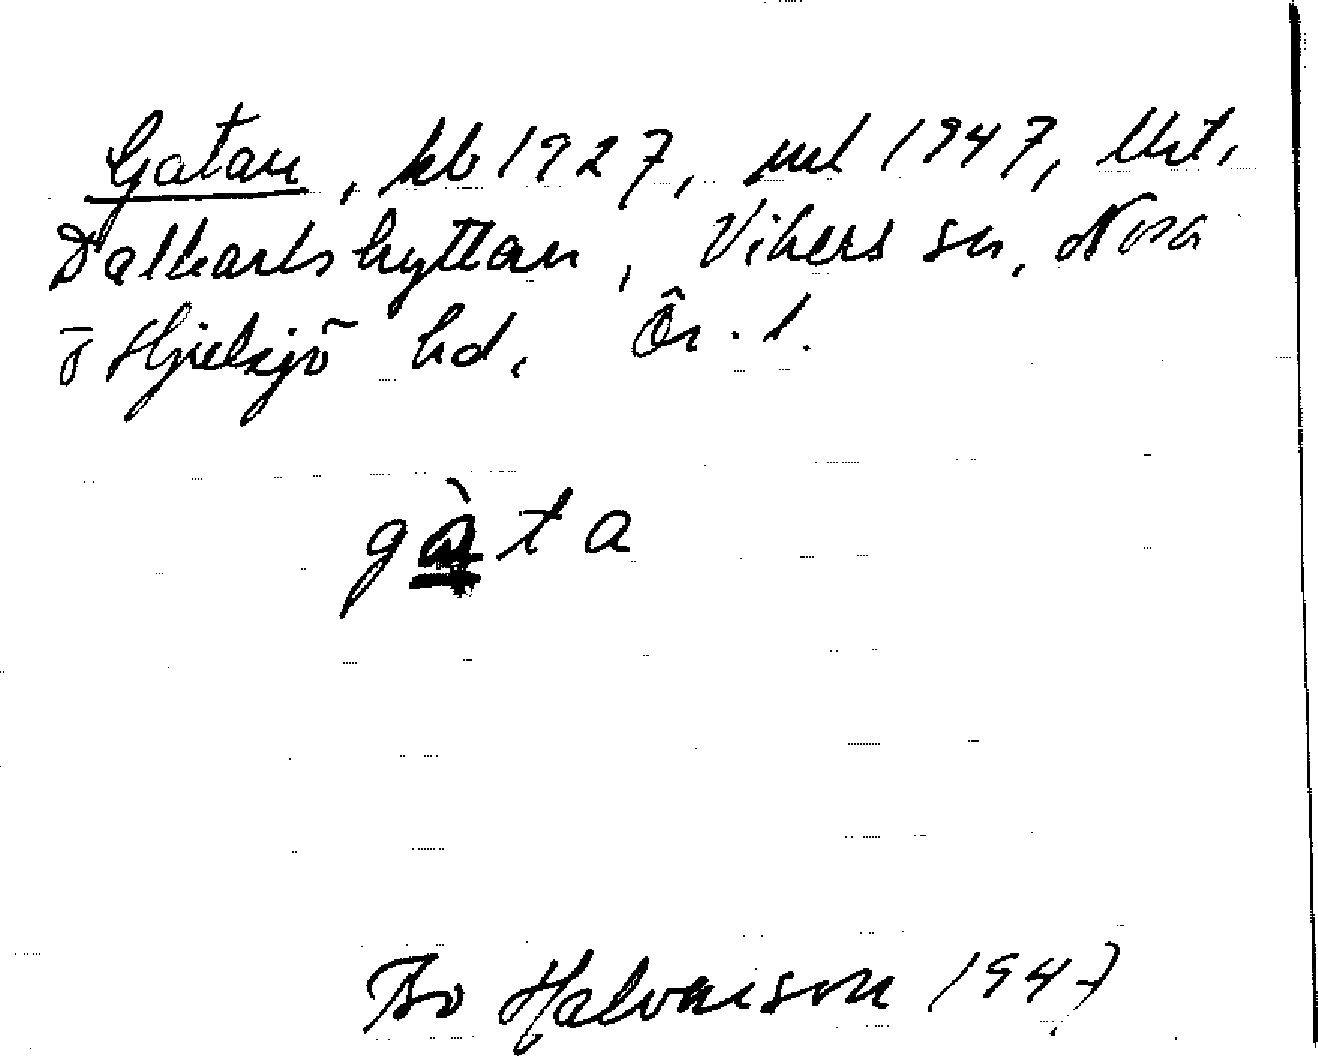 Gatan, kb 1927, ml 1947, lht.
Dalkarlshyttan, Vikers sn, Nora
o Hjulsjö hd, Ör. l.
gàta
Bo Halvarson 1947